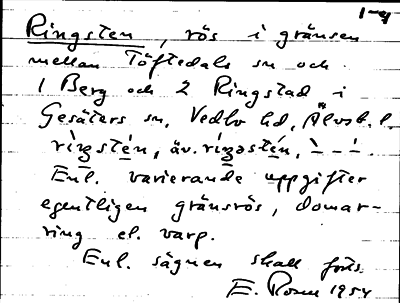 1-4
Ringsten, rös i gränsen
mellan Töftedals sn och
1 Berg och 2 Ringstad i
Gesäters sn, Vedbo hd, Älvsb. l.
riŋstén, äv. riŋastén, `–´–.
Enl. varierande uppgifter
egentligen gränsrös, domar-
ring el. varp.
Enl. sägnen skall
E. Rosen 1954